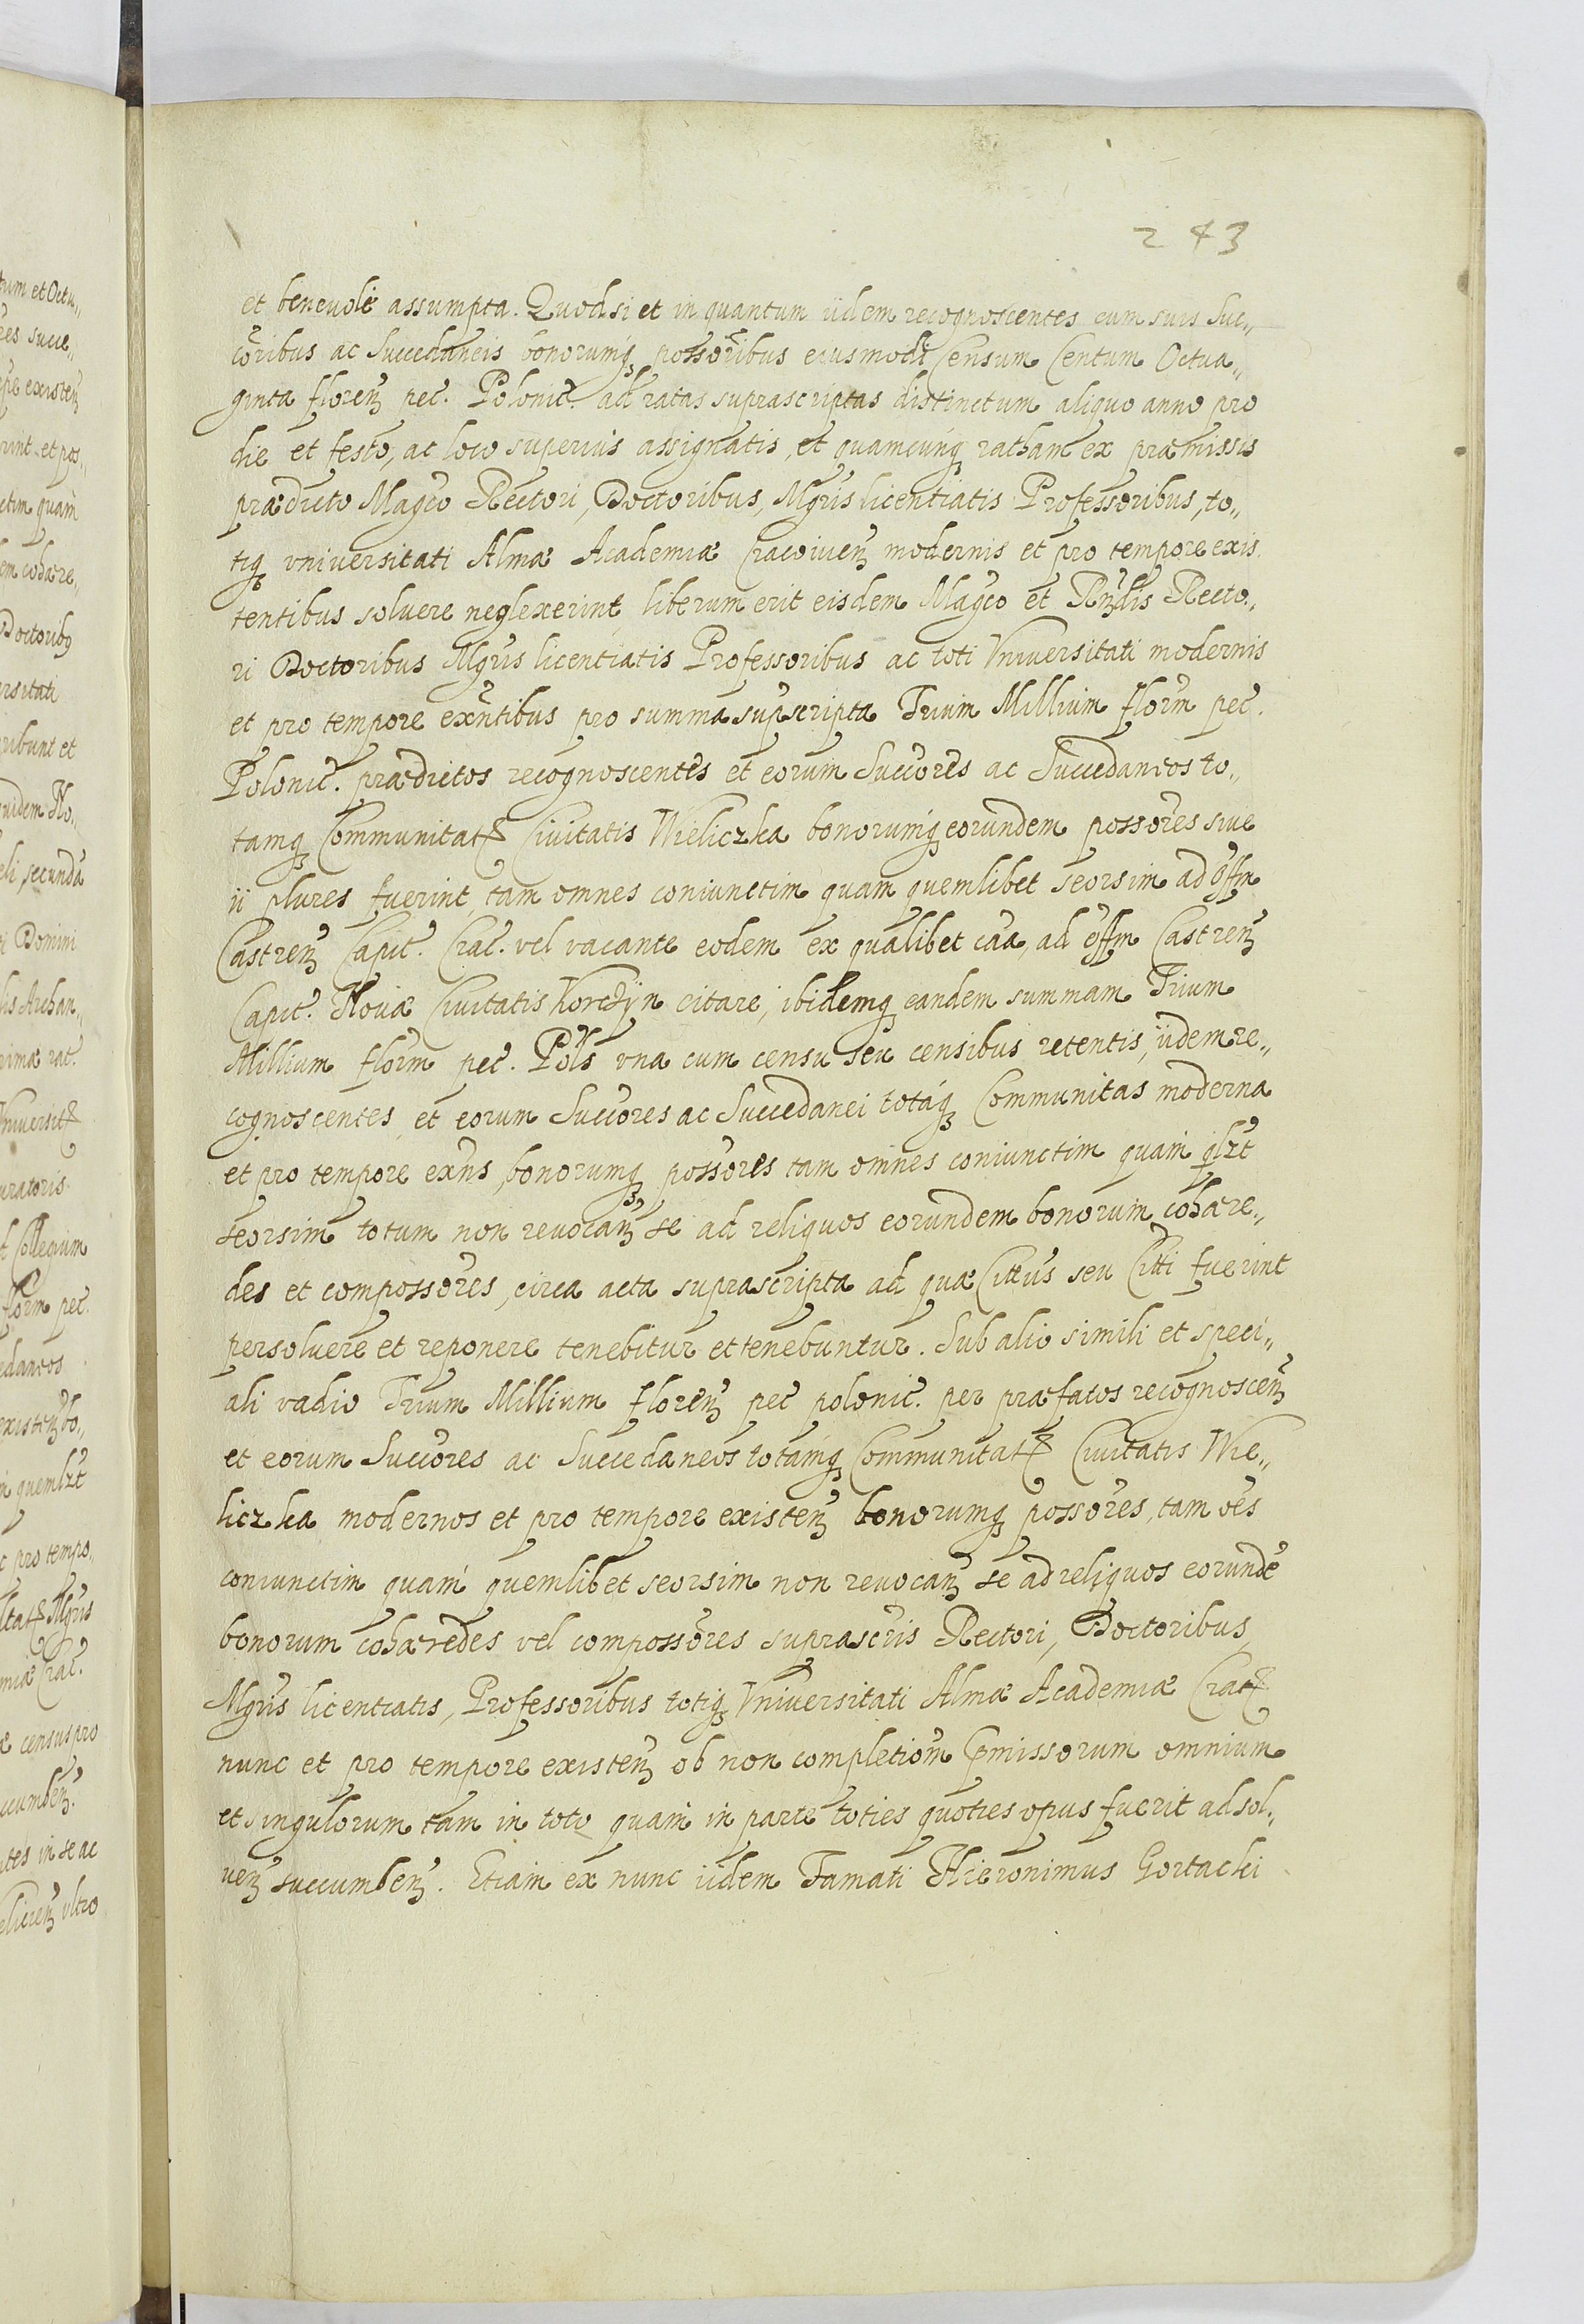 243
et benevolè assumpta. Quodsi et in quantum iidem recognoscentes cum suis Suc„
cōribus ac Succedaneis bonorumq́ȝ possōribus eiusmodi Censum Centum Octua„
ginta florenȝ pec̃. Polonic̃. ad ratas suprascriptas distinctum aliquo anno pro
die et festo, ac loco superius assignatis, et quamcunq̨ȝ ratham ex præmissis
prædicto Magc̃o Rectori, Doctoribus, Mgr̃is licentiatis Professoribus, to„
tiq̨ȝ vniversitati Almæ Academiæ Cracovien̄ȝ modernis et pro tempore exis
tentibus solvere neglexerint, liberum erit eisdem Magc̃o et Rn̄dis Recto„
ri Doctoribus Mgr̃is licentiatis Professoribus ac toti Vniversitati modernis
et pro tempore exñtibus pro summa supscripta Trium Millium flor̃m pec̃.
Polonic̃. prædictos recognoscentes et eorum Succōres ac Succedaneos to„
tamq̨ȝ Communitatȝ Civitatis Wieliczka bonorumq̨ȝ eorundem possōres sive
ii plures fuerint, tam omnes coniunctim quam quemlibet seorsim ad off̃m
Castren̄ȝ Capit̃. Crac̃. vel vacante eodem ex qualibet cãa, ad off̃m Castren̄ȝ
Capit̃. Novæ Civitatis Korczÿn citare, ibidemq̨ȝ eandem summam Trium
Millium flor̃m pec̃. Pol̃s vna cum censu seu censibus retentis, iidem re„
cognoscentes et eorum Succōres ac Succedanei totáq̨ȝ Communitas moderna
et pro tempore exñs, bonorumq̨ȝ possōres tam omnes coniunctim quam qlȝt̃
seorsim totum non revocan̄ȝ se ad reliquos eorundem bonorum cohære„
des et compossōres, circa acta suprascripta ad quæ Citt̃us seu Citt̃i fuerint
persolvere et reponere tenebitur et tenebuntur. Sub alio simili et speci„
ali vadio Trium Millium florenȝ pec̃ polonic̃. per præfatos recognoscen̄ȝ
et eorum Succōres ac Succedaneos totamq̨ȝ Communitatȝ Civitatis Wie„
liczka modernos et pro tempore existen̄ȝ bonorumq̨ȝ possōres, tam oẽs
coniunctim quam quemlibet seorsim non revocan̄ȝ se ad reliquos eorundẽ
bonorum cohæredes vel compossōres suprascr̃is Rectori, Doctoribus,
Mgr̃is licentiatis, Professoribus totiq̨ȝ Vniversitati Almæ Academiæ Cracȝ
nunc et pro tempore existen̄ȝ ob non completiom̃ p̃missorum omnium
et singulorum tam in toto quam in parte toties quoties opus fuerit adsol„
ven̄ȝ succumben̄ȝ. Etiam ex nunc iidem Famati Hieronimus Gortacki